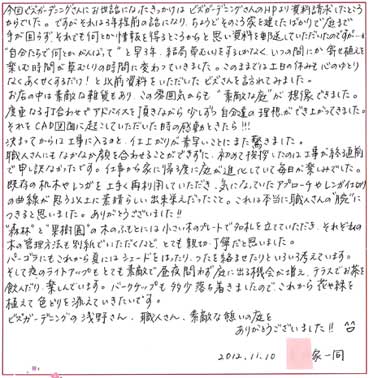 今回ビズガーデンさんにお世話になったきっかけは、ビズガーデンさんのHPより資料請求したところ
からでした。ですがそれは3年程前の話になり、ちょうどそのころ家を建てたばかりで庭まで
手が回らず、それでも何とか情報を得るところからと思い資料を郵送していただいたのですが…
"自分たちで何とかがんばって"と早3年、結局草むしりをするしかなく、いつの間にか寄せ植えを
楽しむ時間が草むしりの時間に変わっていきました。このままでは土日の休みも心のゆとりも
なくあくせくするだけ！と以前資料をいただいたビズさんを訪れてみました。
お店の中は素敵な雑貨もあり、この雰囲気からも"素敵な庭"が想像できました。
度重なる打合わせでアドバイスを頂きながら少しずつ自分達の理想ができ上がってきました。
それをCAD図面に起こしていただいた時の感動ときたら!!!
決まってからは工事に入ると、仕上がりが着早いことにまた驚きました。
職人さんにもなかなか顔を合わせることができずに、初めて挨拶したのは工事が終る直前
で申し訳なかったです。仕事から家に帰る度に庭が進化していて毎日が楽しみでした。
既存の枕木やレンガを上手く再利用していただき、気になっていたアプローチやレンガ仕切り
の曲線が思う以上に素晴らしい出来栄えだったこと。これは本当に職人さんの"腕"に
つきると思いました。ありがとうございました!!
"森林"と"果樹園"の木のふもとには小さい木のプレートで名札を立てていただき、それぞれの
木の管理方法も別紙でいただくなど、とても親切、丁寧だと思いました。
パーゴラにもこれから夏にはシェードをはったり、つたを絡ませたりといろいろ考えています。
そして夜のライトアップもとても素敵で昼夜問わず庭に出る機会も増え、テラスでお茶を
飲んだり、楽しんでいます。バークチップも多少落ち着きましたので、これから花や緑を
植えて色どりを添えていきたいです。
ビズガーデニングの浅野さん、職人さん、素敵な憩いの庭を
ありがとうございました!!
2012.11.10 家一同